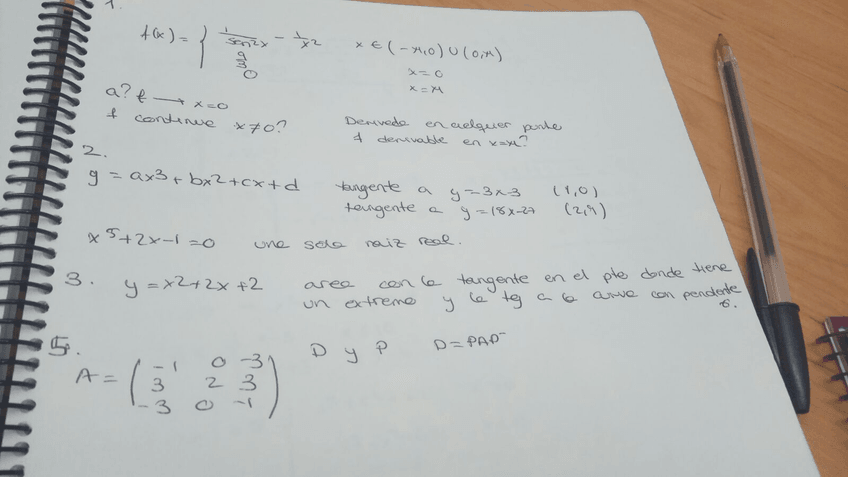 1.
f(x) = { 1/sen2x - 1/x2 x ∈ (-π,0) ∪ (0,π)
a/3 x=0
0 x=π
a? f → x=0 Derivada en cualquier punto
f continue x≠0? f derivable en x=π?
2.
y = ax3 + bx2 + cx + d tangente a y=3x-3 (1,0)
tangente a y=18x-27 (2,9)
x5+2x-1=0 una sola raiz real.
3. y=x2+2x+2 area con la tangente en el pto donde tiene
un extremo y la tg a la curva con pendiente
6.
5.
A = ( -1 0 -3 D y P D=PAP-
3 2 3
-3 0 -1 )